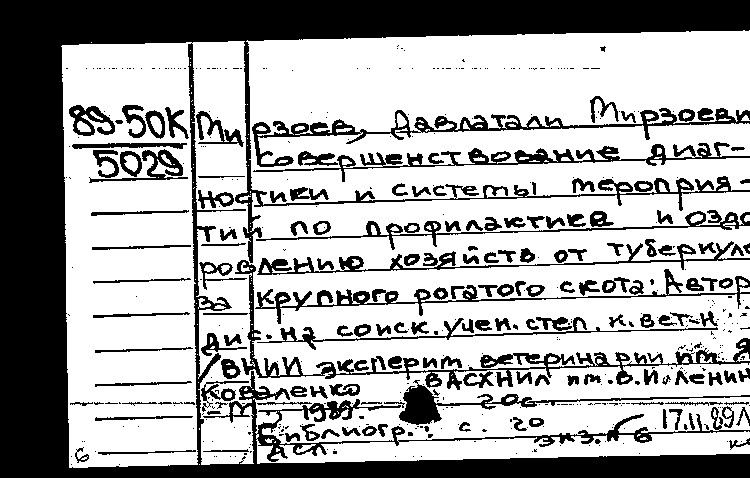 89-50К
5029
Мирзоев, Давлатали Мирзоеви
Совершенствование диаг-
ностики и системы мероприя-
тий по профилактике и оздо
ровлению хозяйств от туберкуле
за крупного рогатого скота: Автор
дис. на соиск. учен. степ. к. вет. н
ВНИИ эксперим ветеринарии им. Я
Коваленко ВАСХНИЛ им. В. И. Ленин
- М, 1989. 20с
Библиогр.: с. 20 17.11.89
дсп. экз. № 6
6